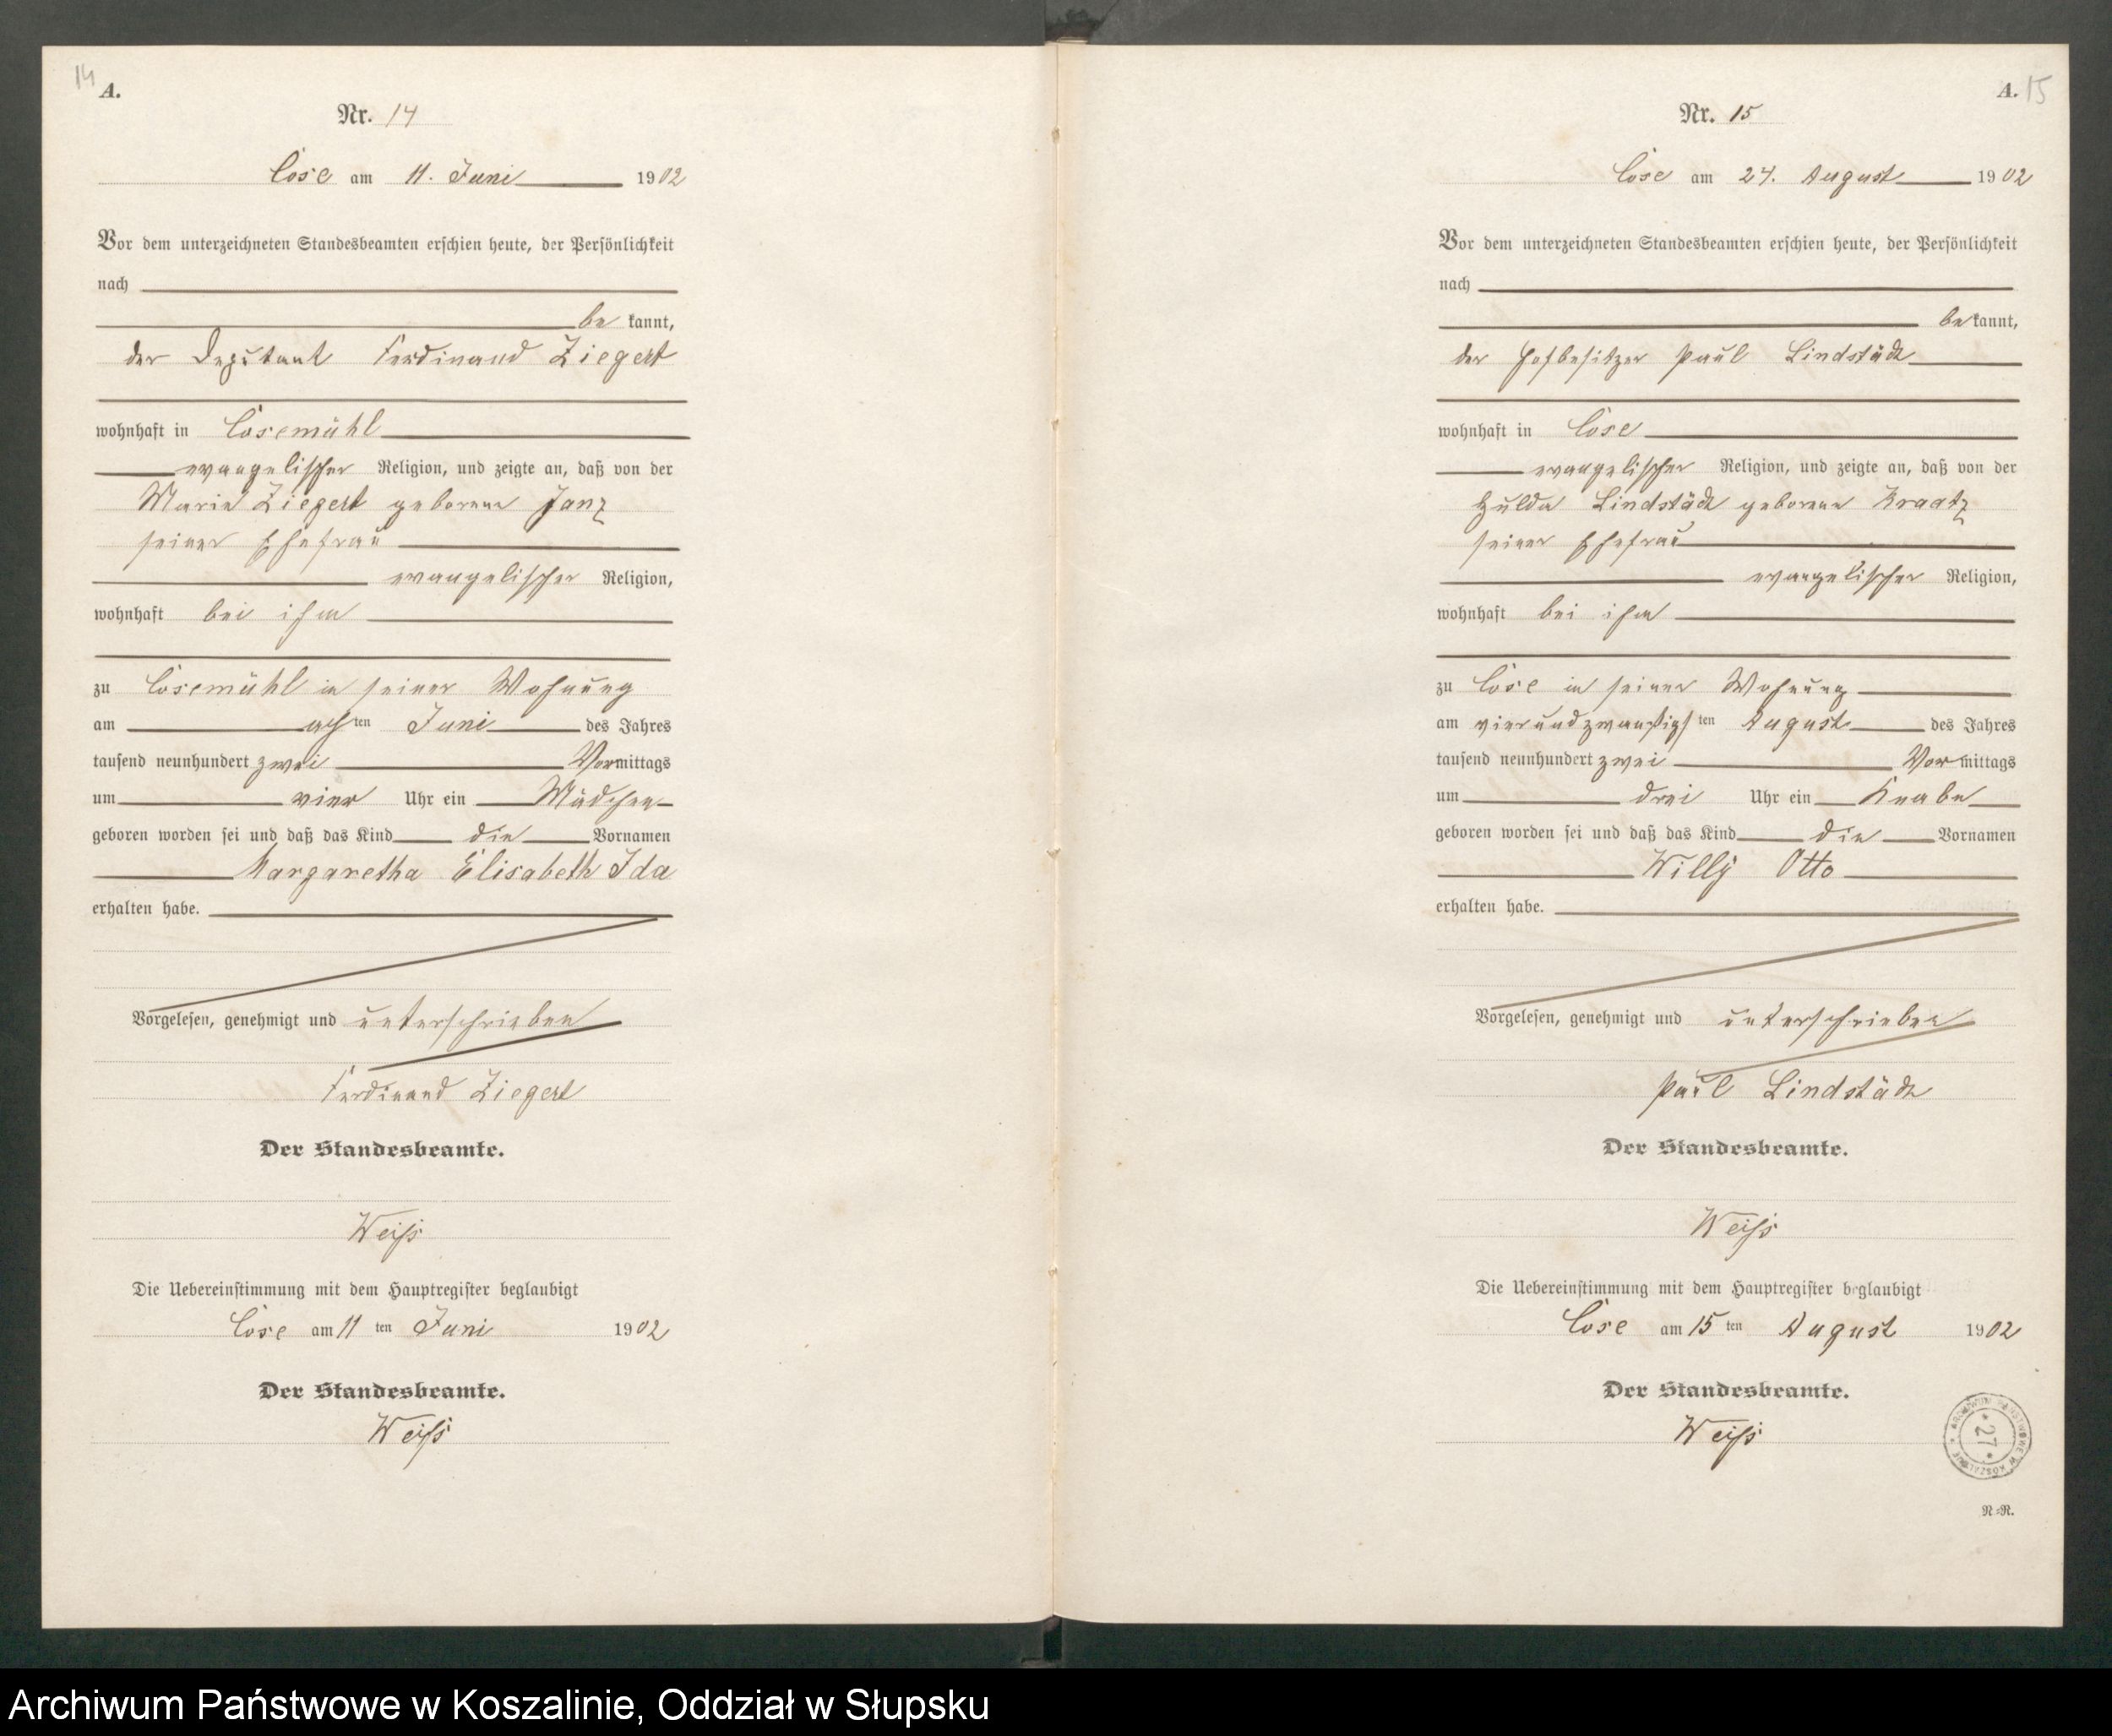 14
A.
Nr. 14
Cose am 11. Juni 1902
Vor dem unterzeichneten Standesbeamten erschien heute, der Persönlichkeit
nach
be kannt,
der Deputant Ferdinand Ziegert
wohnhaft in Cosemühl
evangelischer Religion, und zeigte an, daß von der
Marie Ziegert geborene Janz
seiner Ehefrau
evangelischer Religion,
wohnhaft bei ihm
zu Cosemühl in seiner Wohnung
am achten Juni des Jahres
tausend neunhundert zwei Vormittags
um vier Uhr ein Mädchen
geboren worden sei und daß das Kind die Vornamen
Margaretha Elisabeth Ida
erhalten habe.
Vorgelesen, genehmigt und unterschrieben
Ferdinand Ziegert
Der Standesbeamte.
Weiß
Die Uebereinstimmung mit dem Hauptregister beglaubigt
Cose am 11 ten Juni 1902
Der Standesbeamte.
Weiß
A. 15
Nr. 15
Cose am 24. August 1902
Vor dem unterzeichneten Standesbeamten erschien heute, der Persönlichkeit
nach
be kannt,
der Hofbesitzer Paul Lindstädt
wohnhaft in Cose
evangelischer Religion, und zeigte an, daß von der
Hulda Lindstädt geborene Kraatz
seiner Ehefrau
evangelischer Religion,
wohnhaft bei ihm
zu Cose in seiner Wohnung
am vierundzwanzigsten August des Jahres
tausend neunhundert zwei Vormittags
um drei Uhr ein Knabe
geboren worden sei und daß das Kind die Vornamen
Willy Otto
erhalten habe.
Vorgelesen, genehmigt und unterschrieben
Paul Lindstädt
Der Standesbeamte.
Weiß
Die Uebereinstimmung mit dem Hauptregister beglaubigt
Cose am 15 ten August 1902
Der Standesbeamte.
Weiß
ARCHIWUM PAŃSTWOWE W KOSZALINIE
* 27 *
N=R.
Archiwum Państwowe w Koszalinie, Oddział w Słupsku